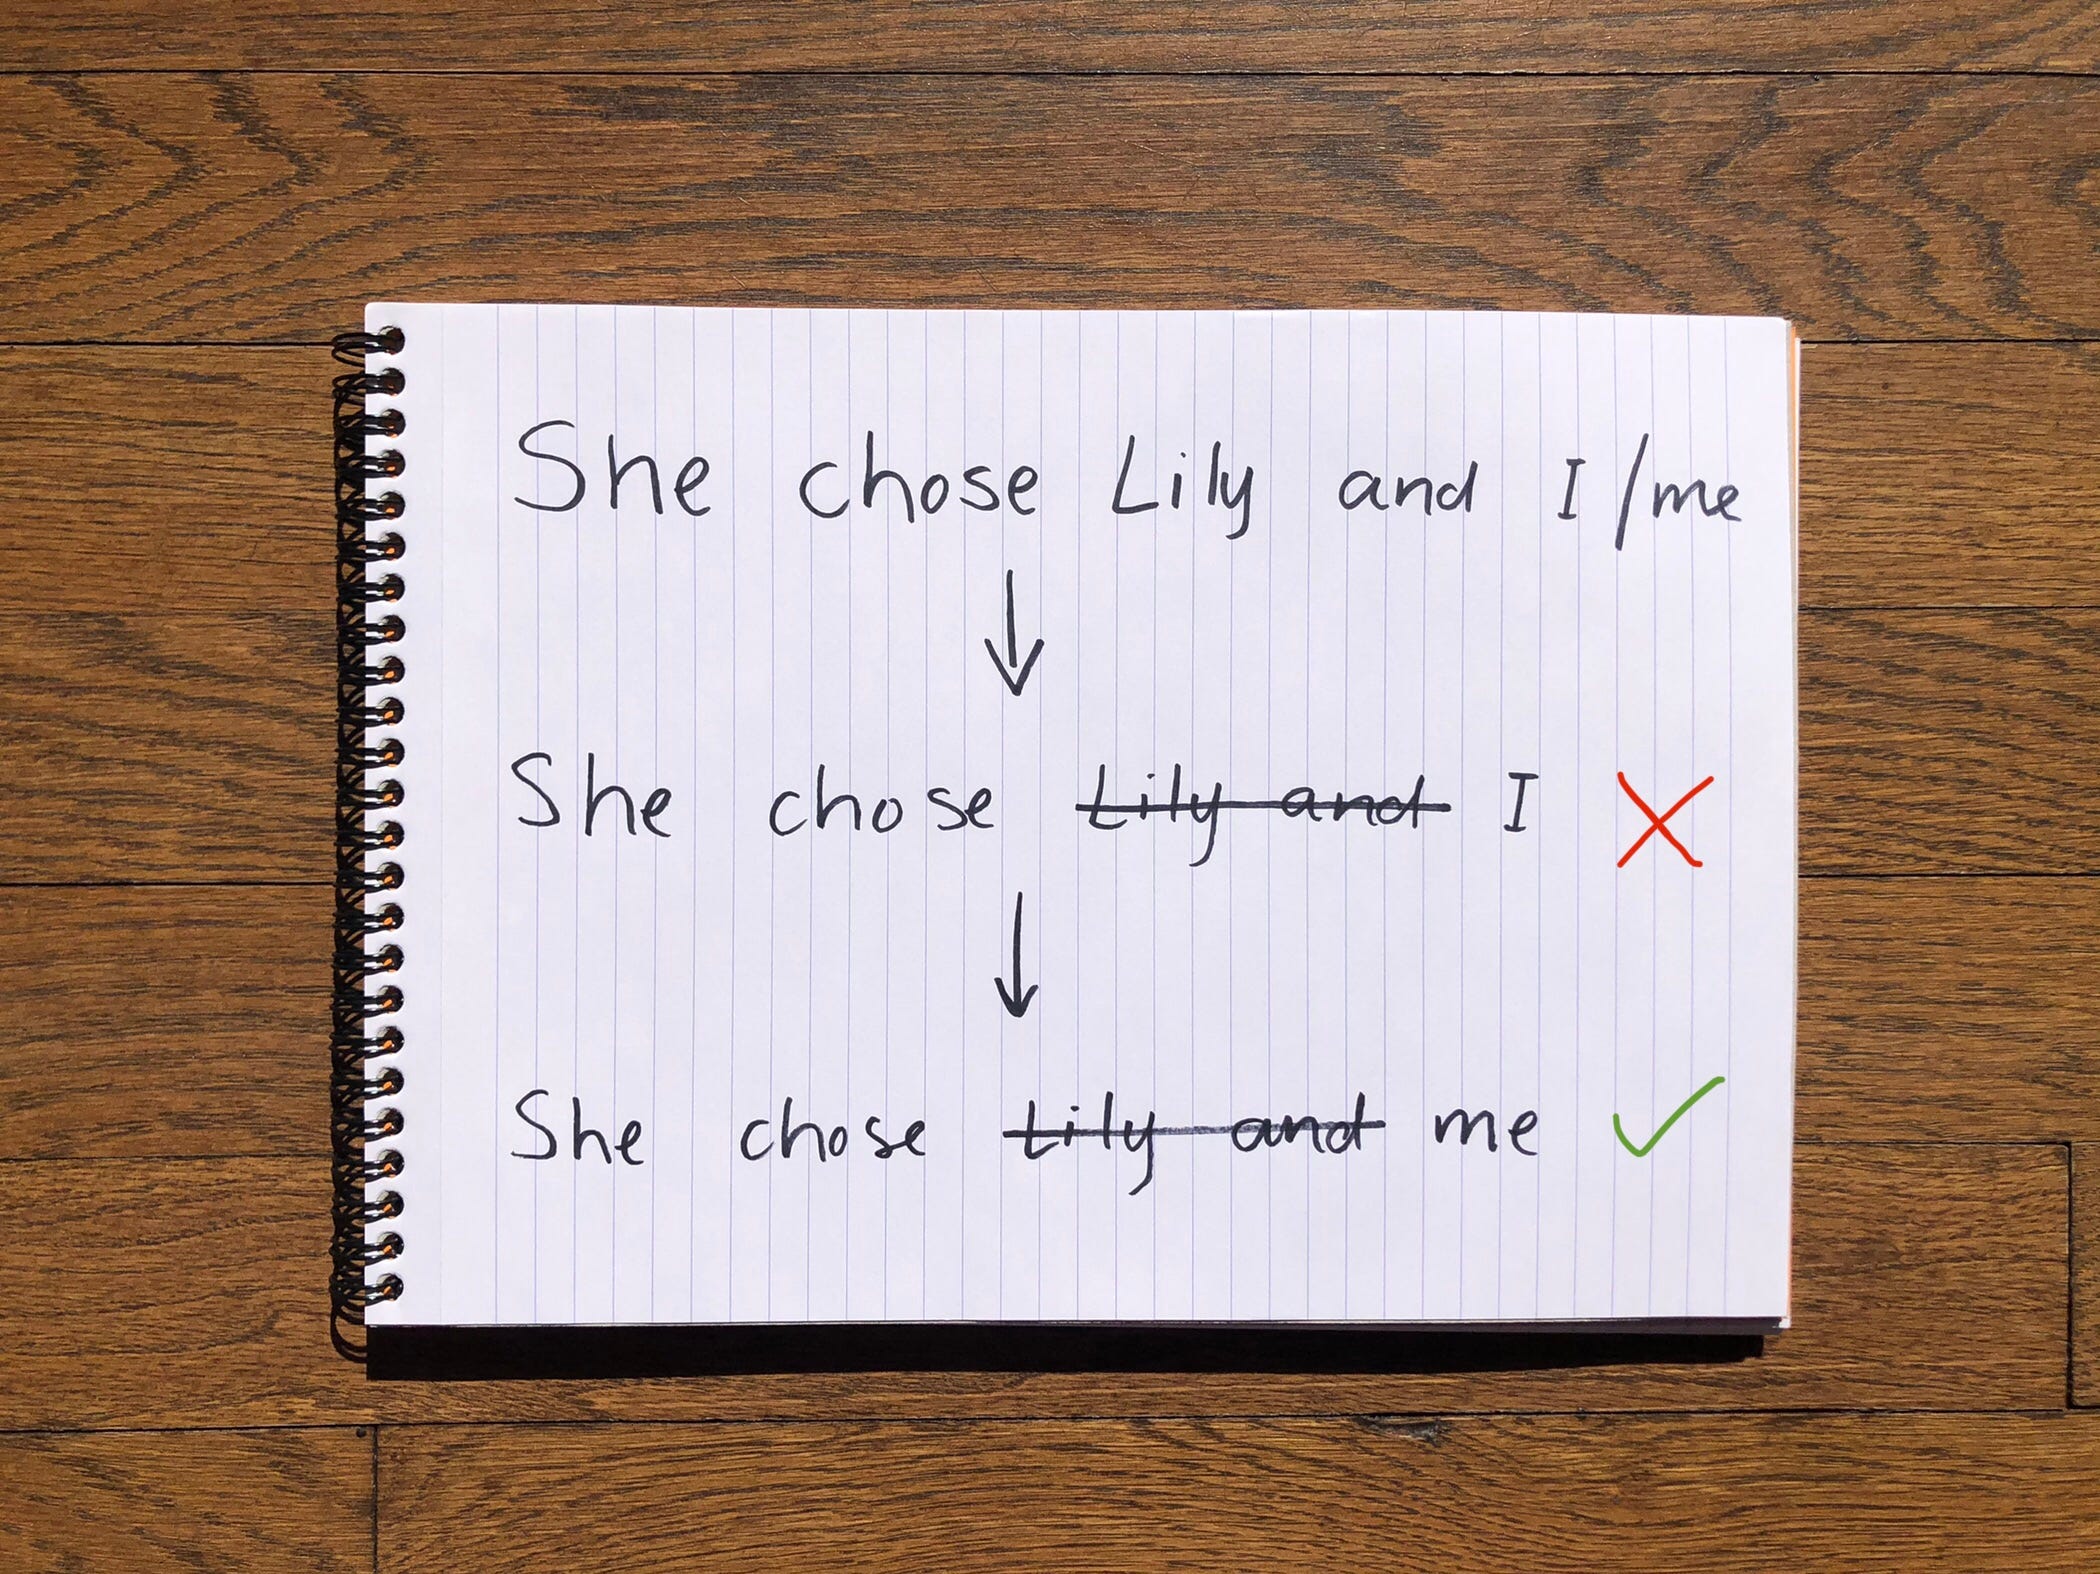 She chose Lily and I/me
She chose Lily and I
She chose Lily and me